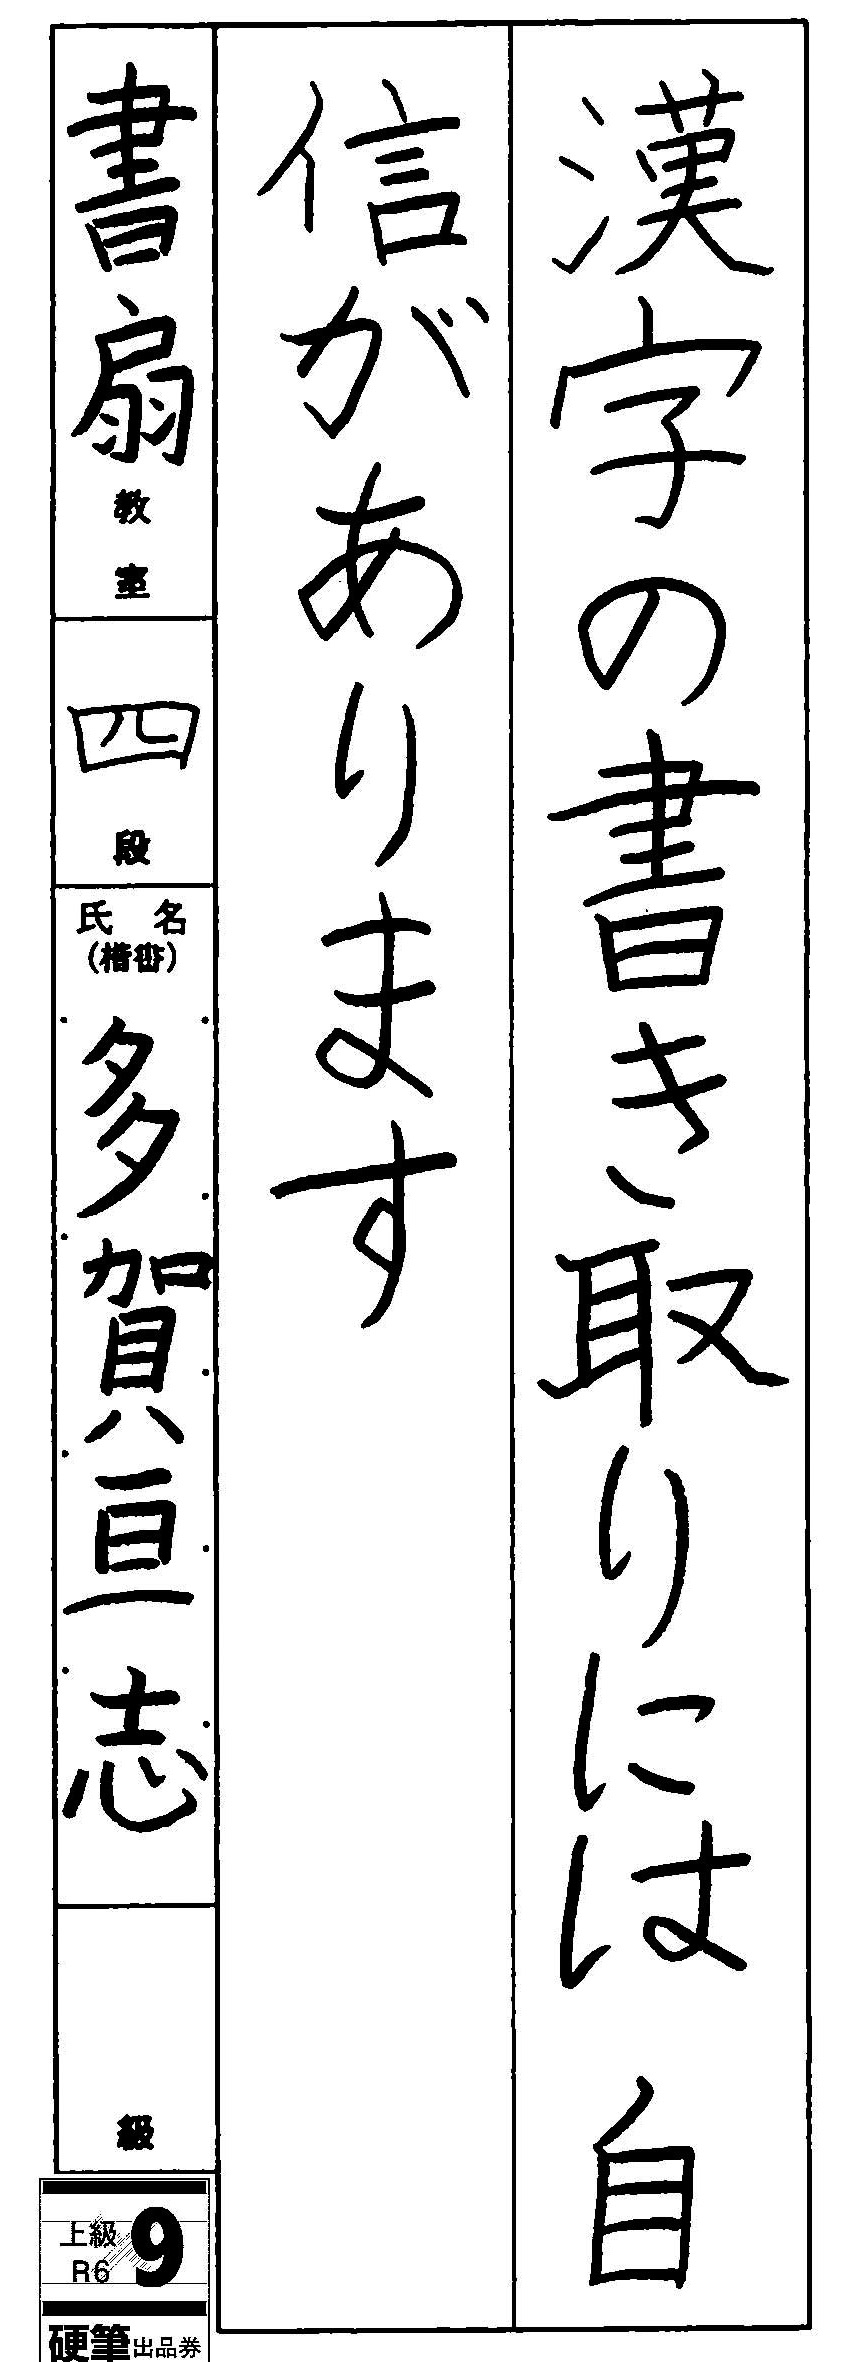 漢字の書き取りには自
信があります
書扇教室
四段
氏名
(楷書)
多賀亘志
級
上級
R6
9
硬筆出品券